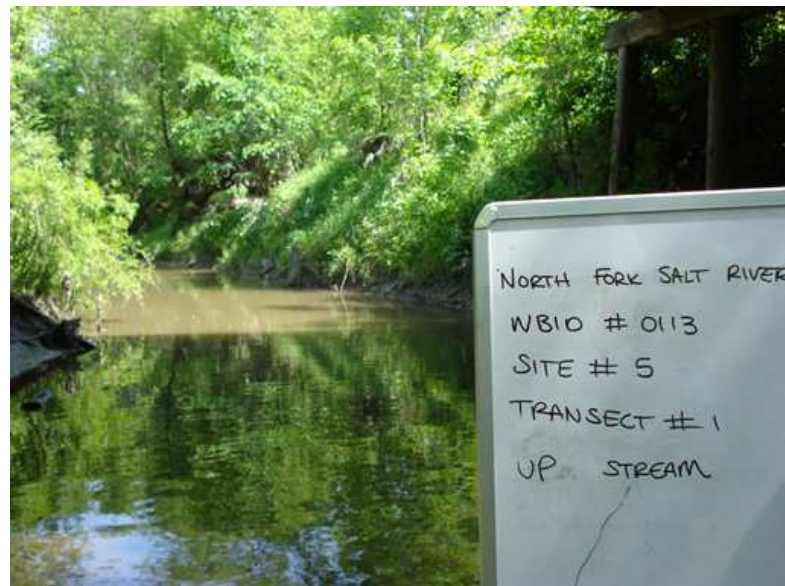 NORTH FORK SALT RIVER
WBID # 0113
SITE # 5
TRANSECT # 1
UP STREAM